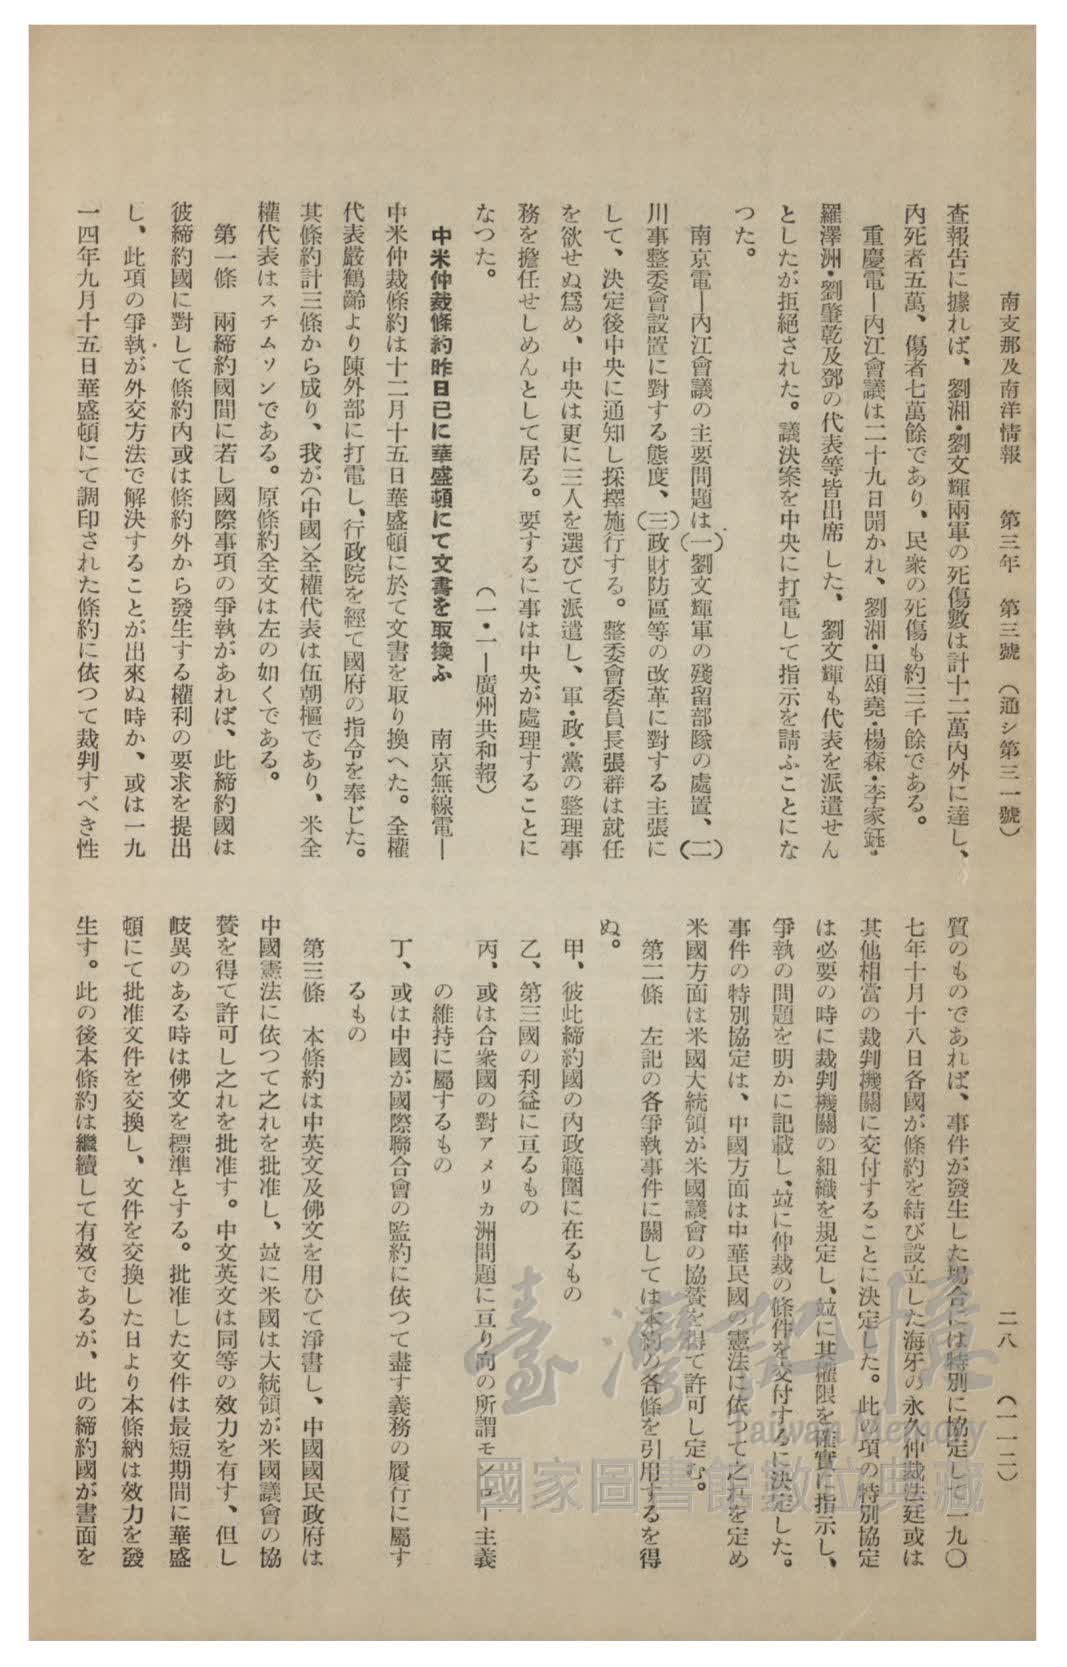 南支那及南洋情報　第三年　第三號　（通シ第三一號）
二八　（一一二）
査報告に據れば、劉湘・劉文輝兩軍の死傷數は計十二萬内外に達し、
内死者五萬、傷者七萬餘であり、民衆の死傷も約三千餘である。
重慶電―内江會議は二十九日開かれ、劉湘・田頌堯・楊森・李家鈺・
羅澤洲・劉肇乾及鄧の代表等皆出席した、劉文輝も代表を派遣せん
としたが拒絕された。議決案を中央に打電して指示を請ふことにな
つた。
南京電―内江會議の主要問題は（一）劉文輝軍の殘留部隊の處置、（二）
川事整委會設置に對する態度、（三）政財防區等の改革に對する主張に
して、決定後中央に通知し採擇施行する。整委會委員長張群は就任
を欲せぬ爲め、中央は更に三人を選びて派遣し、軍・政・黨の整理事
務を擔任せしめんとして居る。要するに事は中央が處理することに
なつた。　（一・一―廣州共和報）
中米仲裁條約昨日已に華盛頓にて文書を取換ふ　南京無線電―
中米仲裁條約は十二月十五日華盛頓に於て文書を取り換へた。全權
代表嚴鶴齡より陳外部に打電し、行政院を經て國府の指令を奉じた。
其條約計三條から成り、我が（中國）全權代表は伍朝樞であり、米全
權代表はスチムソンである。原條約全文は左の如くである。
第一條　兩締約國間に若し國際事項の爭執があれば、此締約國は
彼締約國に對して條約内或は條約外から發生する權利の要求を提出
し、此項の爭執が外交方法で解決することが出來ぬ時か、或は一九
一四年九月十五日華盛頓にて調印された條約に依つて裁判すべき性
質のものであれば、事件が發生した場合には特別に協定して一九〇
七年十月十八日各國が條約を結び設立した海牙の永久仲裁法廷或は
其他相當の裁判機關に交付することに決定した。此の項の特別協定
は必要の時に裁判機關の組織を規定し、竝に其權限を確實に指示し、
爭執の問題を明かに記載し、竝に仲裁の條件を交付するに決定した。
事件の特別協定は、中國方面は中華民國の憲法に依つて之れを定め
米國方面は米國大統領が米國議會の協贊を得て許可し定む。
第二條　左記の各爭執事件に關しては本約の各條を引用するを得
ぬ。
甲、彼此締約國の内政範圍に在るもの
乙、第三國の利益に亘るもの
丙、或は合衆國の對アメリカ洲問題に亘り向の所謂モンロー主義
の維持に屬するもの
丁、或は中國が國際聯合會の監約に依つて盡す義務の履行に屬す
るもの
第三條　本條約は中英文及佛文を用ひて淨書し、中國國民政府は
中國憲法に依つて之れを批准し、竝に米國は大統領が米國議會の協
贊を得て許可し之れを批准す。中文英文は同等の效力を有す、但し
岐異のある時は佛文を標準とする。批准した文件は最短期間に華盛
頓にて批准文件を交換し、文件を交換した日より本條納は效力を發
生す。此の後本條約は繼續して有效であるが、此の締約國が書面を
臺灣記憶
Taiwan Memory
國家圖書館數位典藏